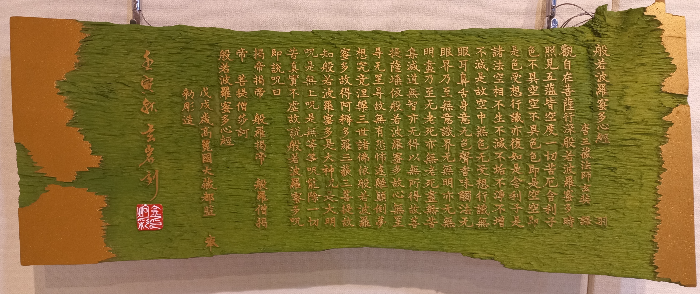 般若波羅蜜多心經
唐三藏法師玄奘 譯
觀自在菩薩行深般若波羅蜜多時
照見五蘊皆空度一切苦厄舍利子
色不異空空不異色色即是空空即
是色受想行識亦復如是舍利子是
諸法空相不生不滅不垢不淨不增
不減是故空中無色無受想行識無
眼耳鼻舌身意無色聲香味觸法無
眼界乃至無意識界無無明亦無無
明盡乃至無老死亦無老死盡無苦
集滅道無智亦無得以無所得故菩
提薩埵依般若波羅蜜多故心無罣
礙無罣礙故無有恐怖遠離顛倒夢
想究竟涅槃三世諸佛依般若波羅
蜜多故得阿耨多羅三藐三菩提故
知般若波羅蜜多是大神呪是大明
呪是無上呪是無等等呪能除一切
苦真實不虛故說般若波羅蜜多呪
即說呪曰
揭帝揭帝 般羅揭帝 般羅僧揭
帝 菩提僧莎訶
般若波羅蜜多心經
戊戌歲高麗國大藏都監 奉
勅彫造